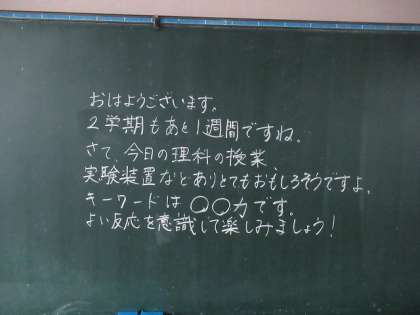 おはようございます。
2学期もあと1週間ですね。
さて、今日の理科の授業、
実験装置などありとてもおもしろそうですよ。
キーワードは○○力です。
よい反応を意識して楽しみましょう!